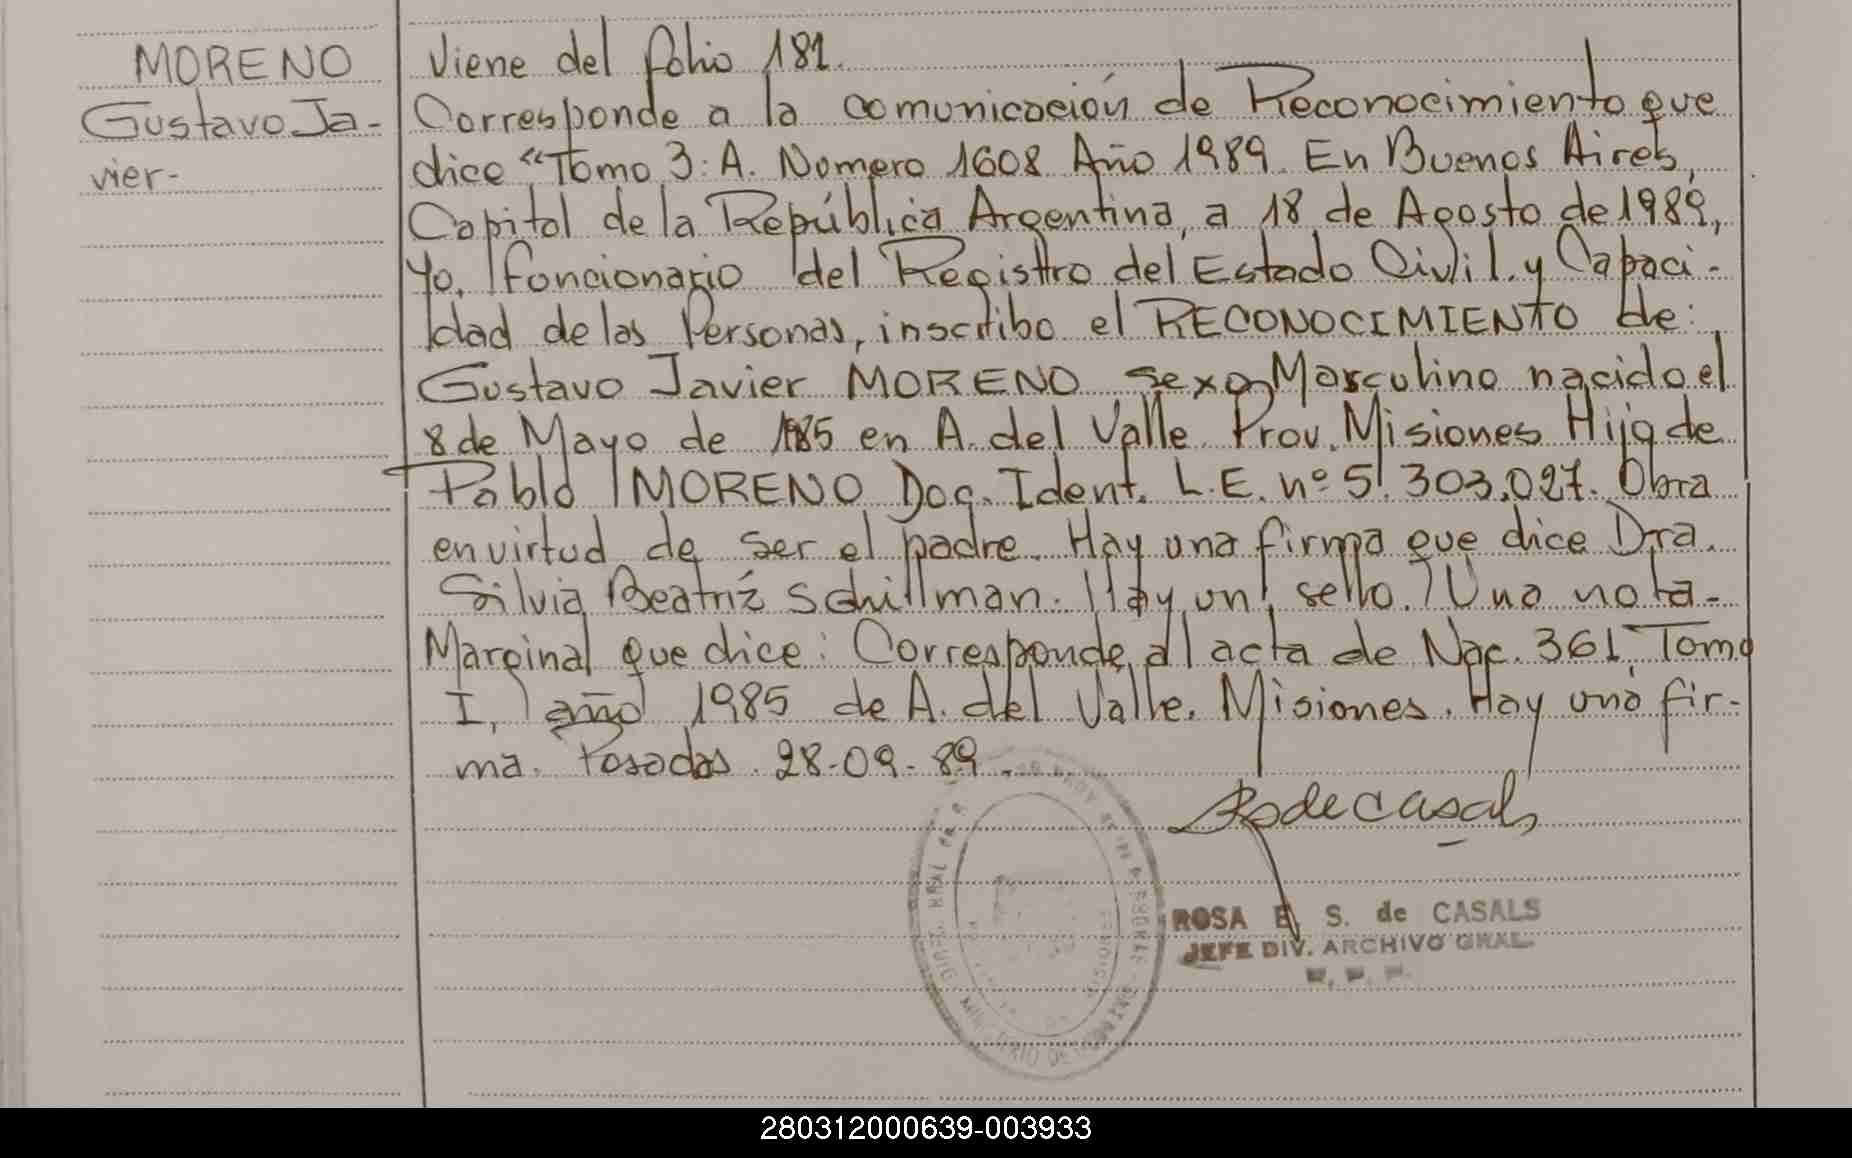 MORENO
Gustavo Ja-
vier-
Viene del folio 181.
Corresponde a la comunicación de Reconocimiento que
dice "Tomo 3: A. Numero 1608 Año 1989. En Buenos Aires,
Capital de la República Argentina, a 18 de Agosto de 1989,
Yo, funcionario del Registro del Estado Civil y Capaci-
dad de las Personas, inscribo el RECONOCIMIENTO de:
Gustavo Javier MORENO sexo Masculino nacido el
8 de Mayo de 1985 en A. del Valle Prov. Misiones Hijo de
Pablo MORENO Doc. Ident. L.E. nº 5.303.027. Obra
en virtud de ser el padre. Hay una firma que dice Dra.
Silvia Beatriz Schillman. Hay un sello. Una nota-
Marginal que dice: Corresponde al acta de Nac. 361, Tomo
I, año 1985 de A. del Valle. Misiones. Hay una fir-
ma. Posadas. 28-09-89.
de Casals
ROSA E. S. de CASALS
JEFE DIV. ARCHIVO GRAL.
280312000639-003933